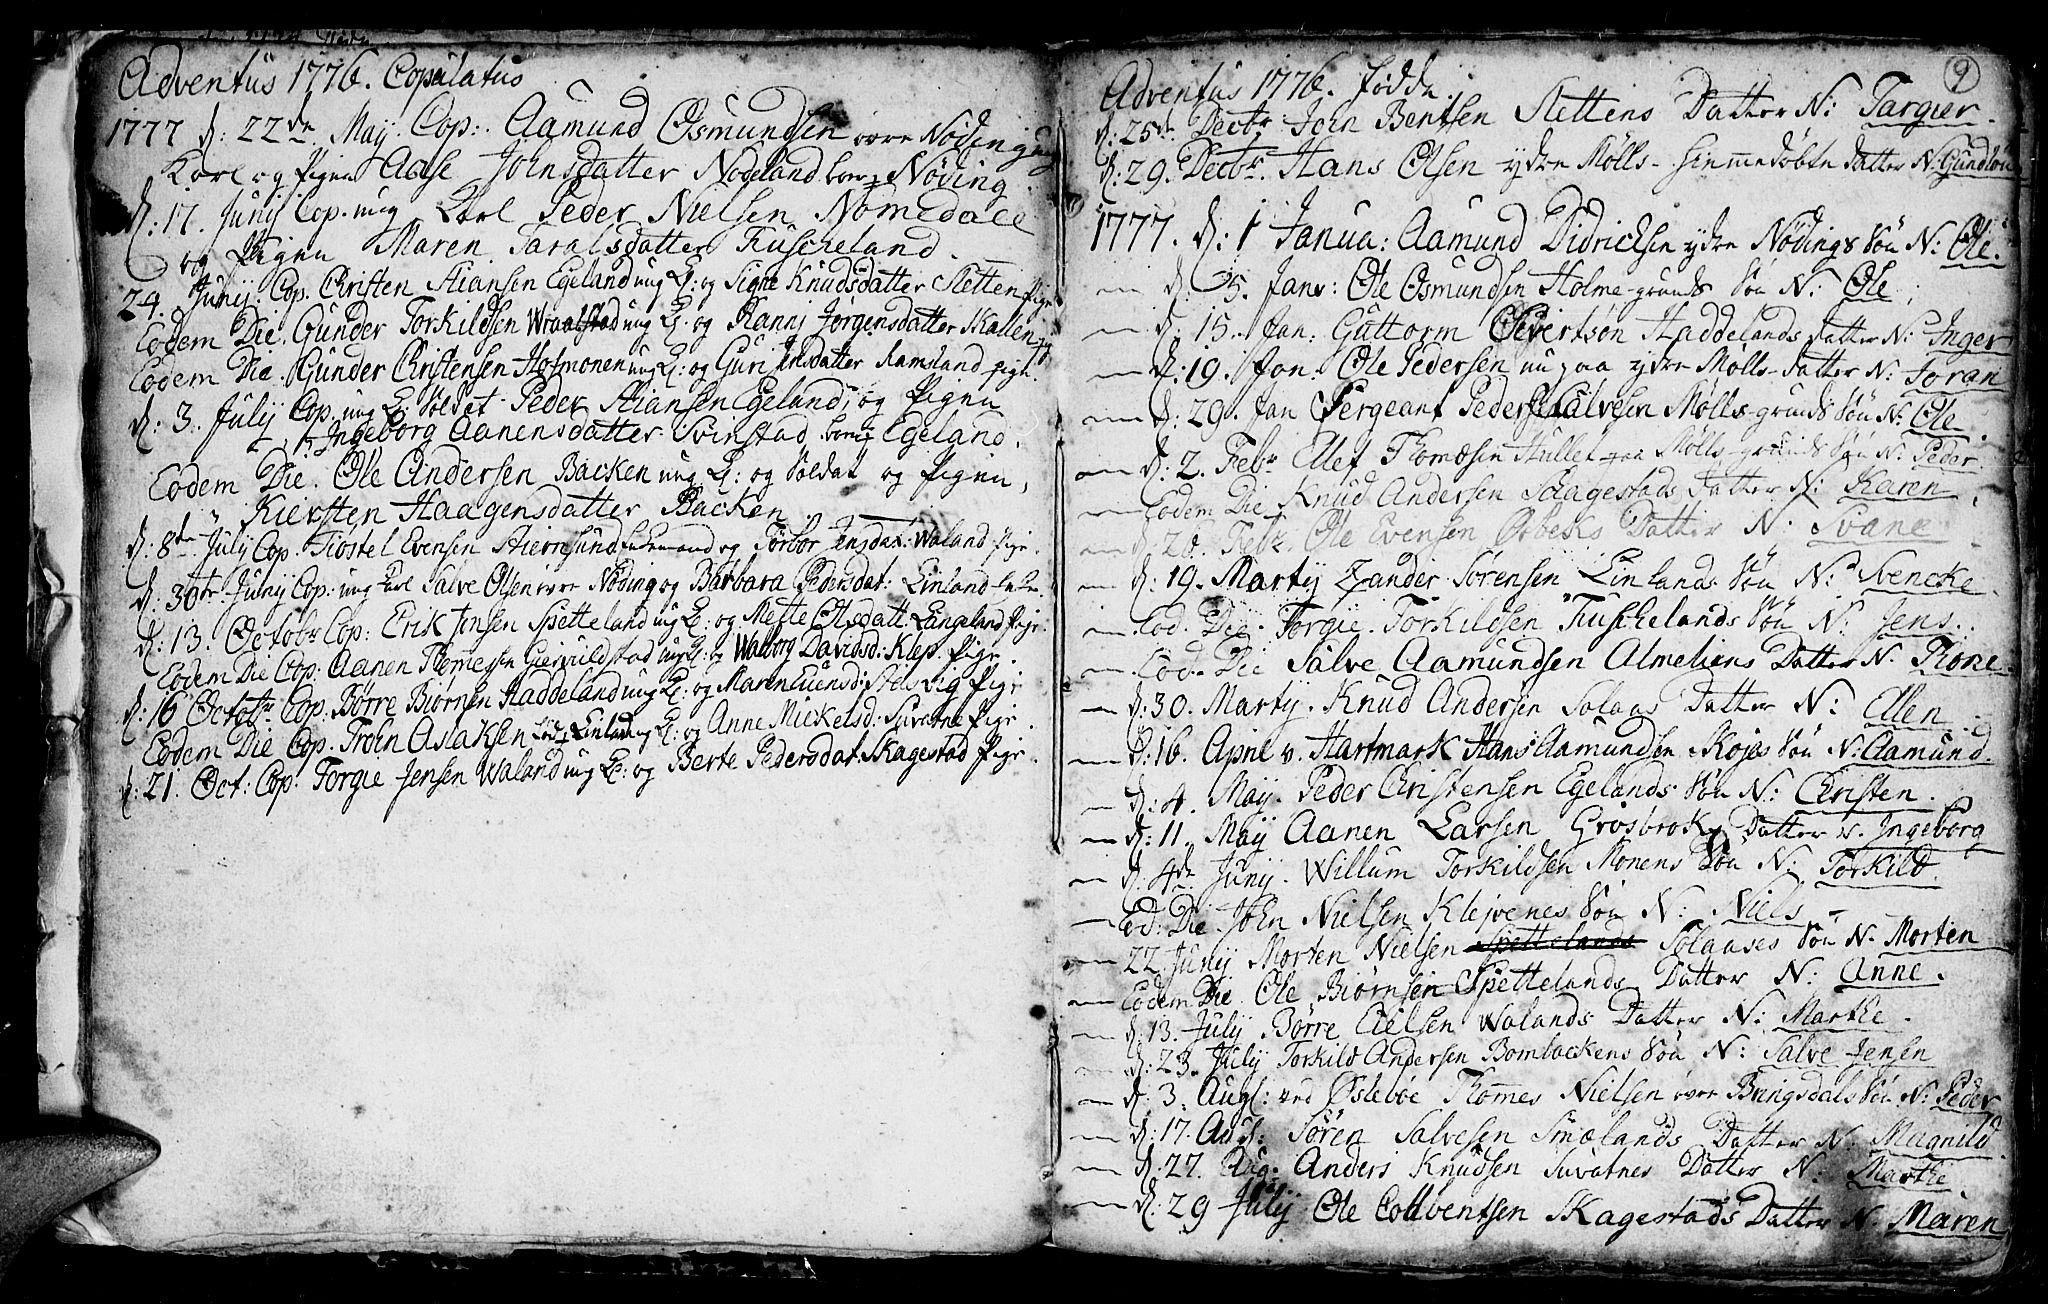 Adventus 1776. Copulatus
1777 d: 22de May. Cop: Aamund Osmundsen øvre Nøding ung
Karl og Pigen Aase Johnsdatter Nodeland Nøding.
d: 17. Junij Cop. ung Karl Peder Nielsen Nomedale
og Pigen Maren Taralsdatter Tuscheland.
24. Junij. Cop. Christen Stiansen Egeland ung K: og Signe Knudsdatter Sletten Pige
Eodem Die. Gunder Torkildsen Wraalstad ung K: og Ranni Jørgensdatter Skallen
Eodem Die. Gunder Christensen Hofsmonen ung K: og Guri Jensdatter Ramsland pige.
d: 3. July Cop. ung K: Soldat Peder Stiansen Egeland, og Pigen
Ingeborg Aanensdatter Svinstad Egeland.
Eodem Die. Ole Andersen Backen ung K: og Soldat og Pigen,
Kiersten Haagensdatter Backen.
d: 8de July Cop. Tiostel Evensen Stiernsund Enkemand og Torbor Jensdat: Waland Pige.
d: 30te Juny Cop: ung Karl Salve Olsen øvre Nøding og Barbara Pedersdat: Linland
d: 13. Octobr Cop: Erik Jensen Spetteland ung K: og Mette Olsdatt. Langeland Pige.
Eodem Die Cop: Aanen Thomesen Giervildstad ung K: og Walborg Davidsd: Klep. Pige.
d: 16 Octobr Cop: Børre Biørnsen Haddeland ung K: og Maren Evensd: Stelsvig Pige
Eodem Die Cop. Trohn Aslaksen Linland ung K: og Anne Mickelsd: Suvatne Pige.
d: 21. Oct: Cop. Torgie Jensen Waland ung K: og Berte Pedersdat: Skagestad Pige.
9
Adventus 1776. Fødde.
d: 25de Decbr John Bentsen Slettens Datter N: Targier.
d: 29. Decbr. Hans Olsen ydre Mølls- hiemmedøbte datter N: Gundlou
1777. d: 1 Janua: Aamund Didricksen ydre Nødings Søn N: Ole.
— d: 5. Janv: Ole Osmundsen Holme-grunds Søn N: Ole.
— d: 15. Jan: Guttorm Olevertsøn Haddelands datter N: Inger
— d: 19. Jan. Ole Pedersen nu paa ydre Mølls- datter N: Joran
— d: 29. Jan Sergeant Peders Salvesen Mølls-grunds Søn N: Ole.
— d: 2. Febr Ellef Thomæsen Hullet paa Mølls-grunds Søn N: Peder.
— Eodem Die Knud Andersen Schagestads Datter N: Karen.
— d: 20. Febr. Ole Evensen Østbecks Datter N: Svane.
— d: 19. Martij Zander Sørensen Linlands Søn N: Svencke.
— Eod. Die. Torgie Torkildsen Tuschelands Søn N: Jens.
— Eod. Die Salve Aamundsen Almeliens Datter N: Tione.
— d: 30. Martij. Knud Andersen Solaas Datter N: Ellen.
— d: 16. April v. Hartmark Hans Aamundsen Skojes Søn N: Aamund.
— d: 4. Maij. Peder Christensen Egelands Søn N: Christen.
— d: 11. Maij Aanen Larsen Grosbrok, Datter N. Ingeborg
— d: 4de Junij. Willum Torkildsen Monens Søn N: Torkild.
— Eod: Die. John Nielsen Klejvenes Søn N: Niels.
— 22. Junij Morten Nielsen Spettelands Solaases Søn N. Morten
— Eodem Die. Ole Biørnsen Spettelands Datter N: Anne.
— d: 13. Julij. Børre Eielsen Walands Datter N: Marthe.
— d: 23. Julij Torkild Andersen Bombackens Søn N: Salve Jensen
— d: 3. Aug: ved Øslebøe Thomes Nielsen øvre Bringsdals Søn N: Peder
— d: 17. Aug: Søren Salvesen Smælands Datter N: Magnild.
— d: 27. Aug. Anders Knudsen Suvatnes Datter N: Marthe
— d: 29 Julij Ole Collbentsen Skagestads Datter N. Maren